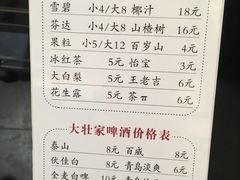 雪碧 小4/大8 椰汁 18元
芬达 小4/大8 山楂树 16元
果粒 小5/大12 百岁山 4元
冰红茶 5元 怡宝 3元
大白梨 5元 王老吉 6元
花生露 5元 茶π 6元
大壮家啤酒价格表
泰山 8元 百威 8元
伙佳白 8元 青岛淡爽 6元
全麦白啤 10元